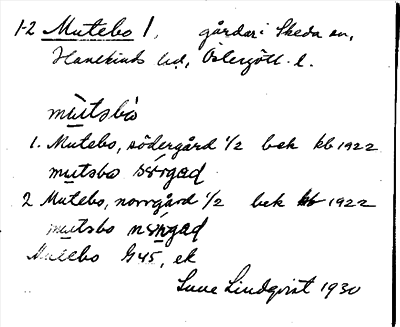 1-2 Mutebo 1, gårdar i Skeda sn,
Hanekinds hd, Östergötl. l.
mùtsbò
1. Mutebo, södergård 1/2 bek kb 1922
mutsbo sörgad
2 Mutebo, norrgård 1/2 bek kb 1922
mutsbo nörgad
Mutebo G45, ek
Sune Lindqvist 1930